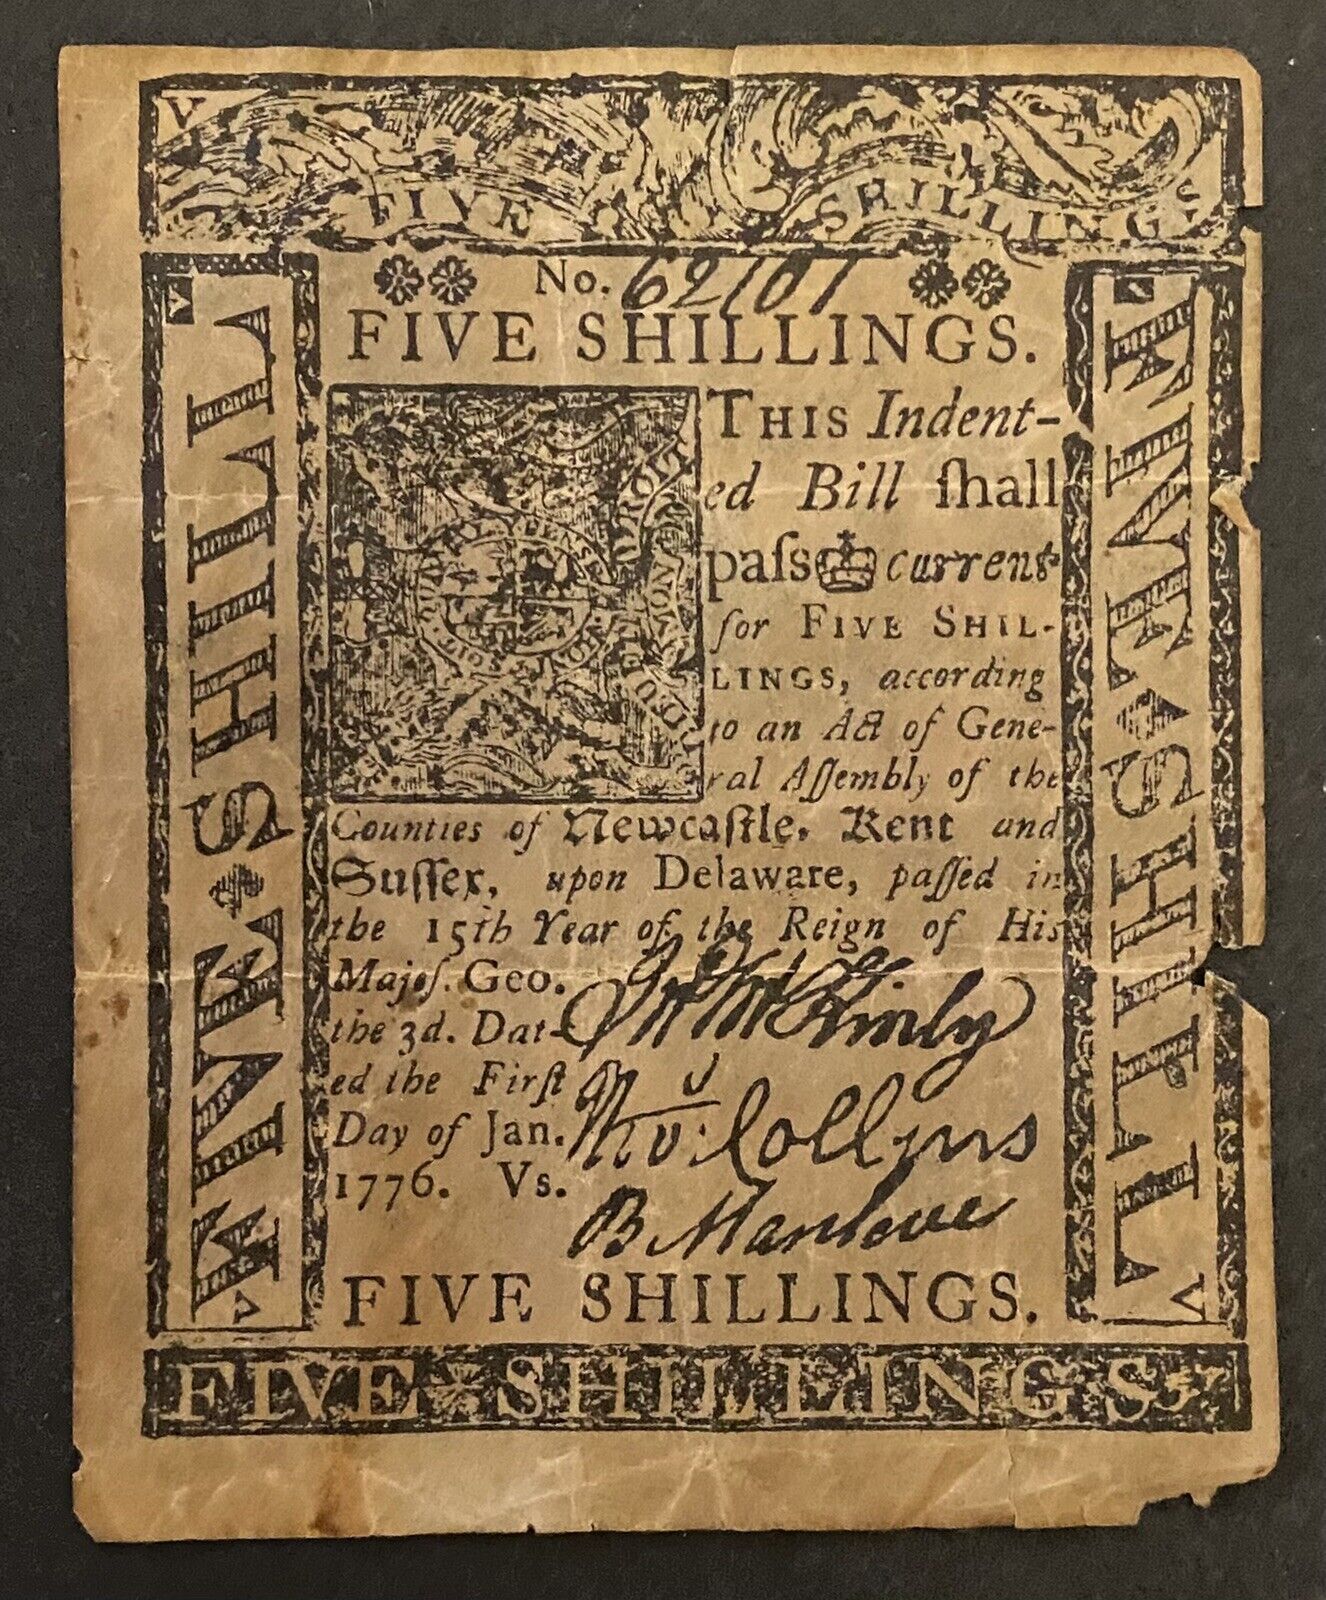 V
FIVE SHILLINGS
No. 62101
FIVE SHILLINGS.
THIS Indent-
ed Bill ſhall
paſs current
for FIVE SHIL-
LINGS, according
to an Act of Gene-
ral Aſſembly of the
Counties of Newcaſtle, Kent and
Suſſex, upon Delaware, paſſed in
the 15th Year of the Reign of His
Majeſ. Geo.
the 3d. Dat-
ed the Firſt
Day of Jan.
1776. Vs.
Collins
B Manlove
FIVE SHILLINGS.
FIVE SHILLINGS
V
V
V
V